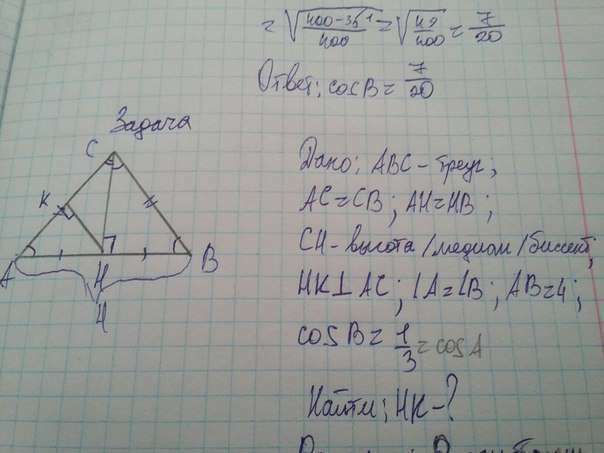 = √(400-361/400) = √(49/400) = 7/20
Ответ: cosB = 7/20
Задача
C
K
A
H
B
4
Дано: ABC - треуг;
AC = CB; AH = HB;
CH - высота/медиан/биссект;
HK⊥AC; ∠A = ∠B; AB = 4;
cosB = 1/3 = cosA
Найти: HK - ?